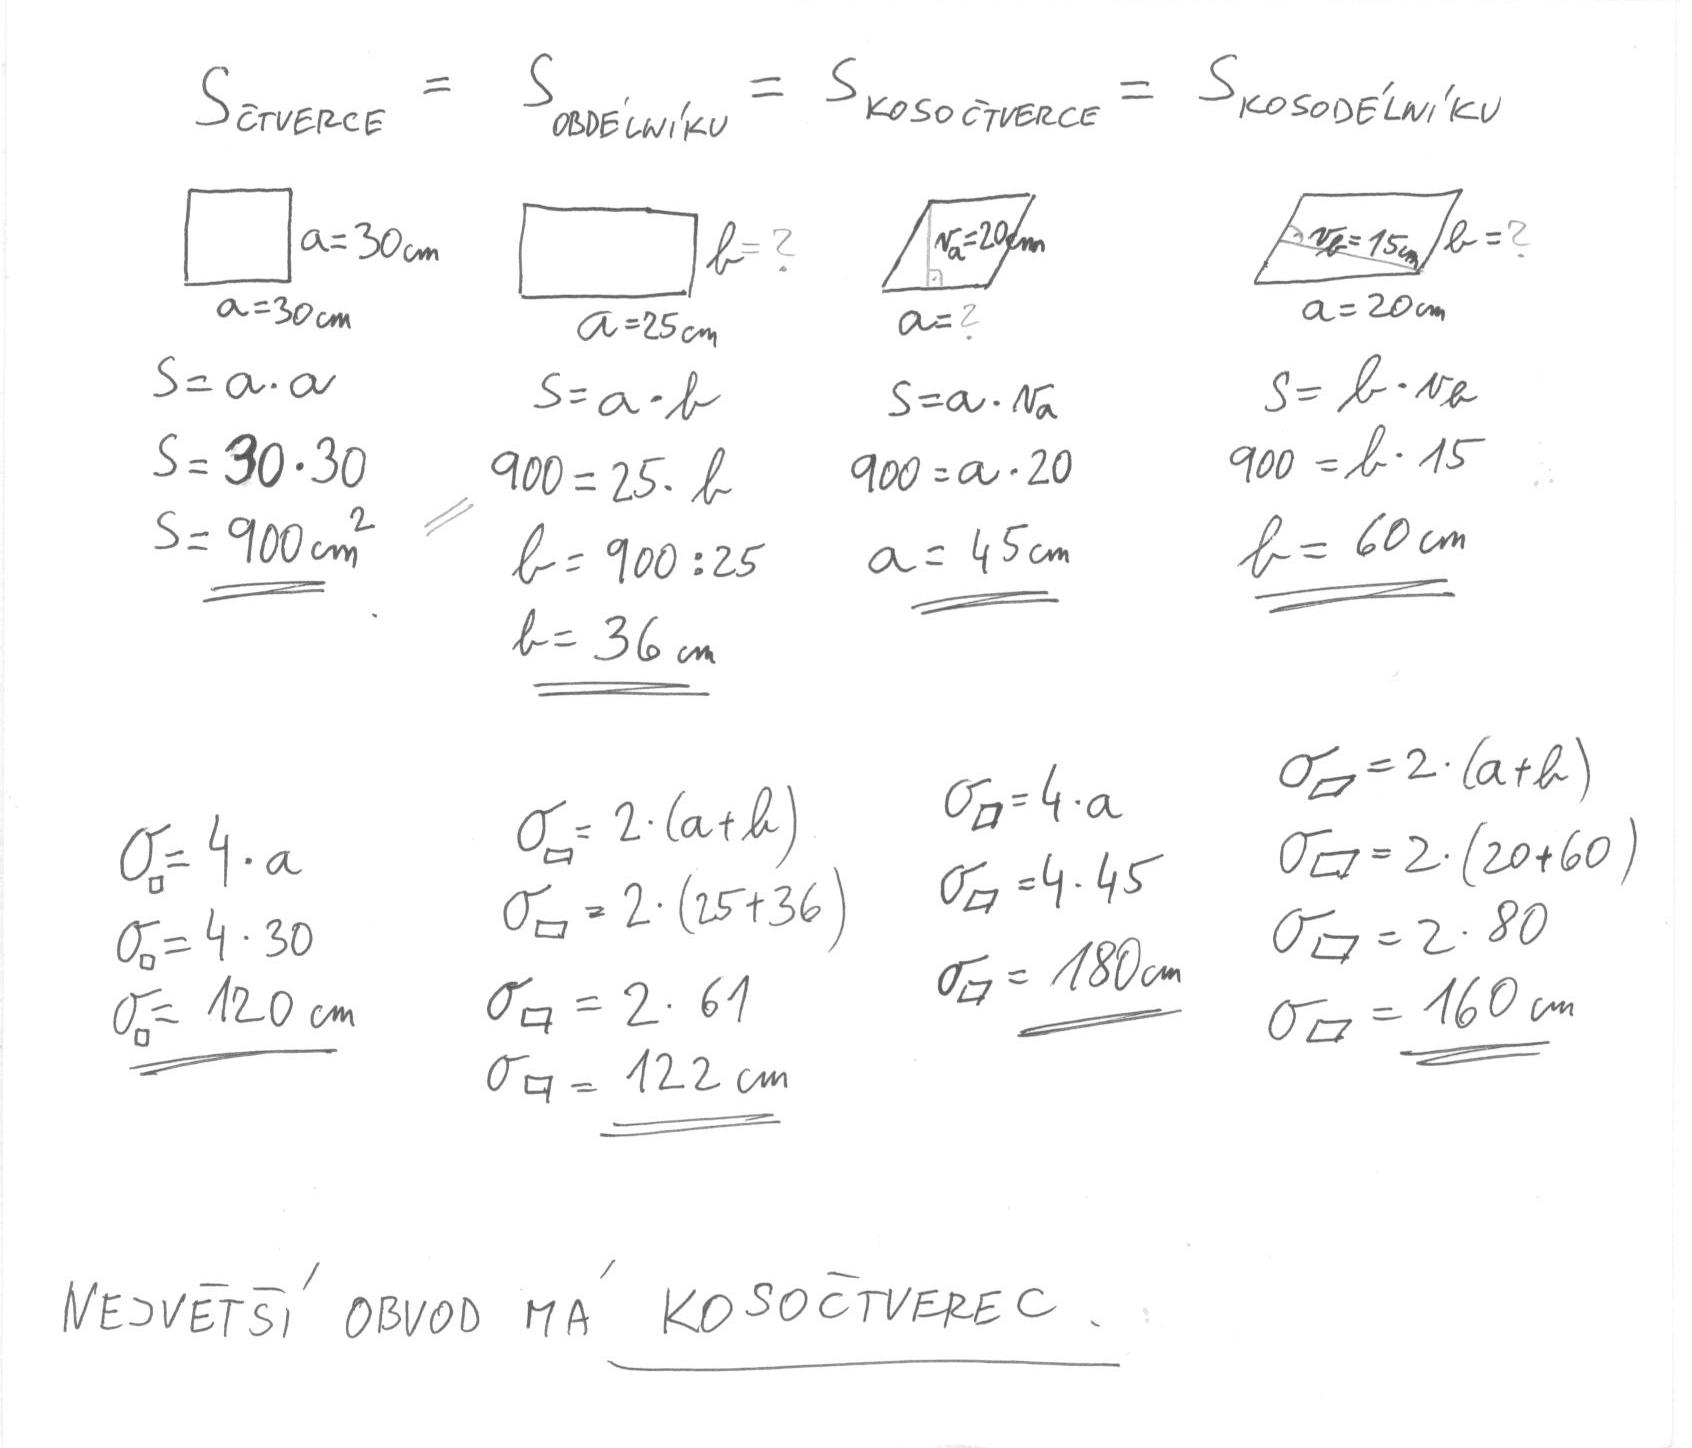 S ČTVERCE = S OBDÉLNÍKU = S KOSOČTVERCE = S KOSODÉLNÍKU
a=30cm
a=30cm
b=?
a=25cm
va=20cm
a=?
vb=15cm
b=?
a=20cm
S=a·a
S=30·30
S=900cm²
S=a·b
900=25·b
b=900:25
b=36cm
S=a·va
900=a·20
a=45cm
S=b·vb
900=b·15
b=60cm
o□=4·a
o□=4·30
o□=120cm
o▭=2·(a+b)
o▭=2·(25+36)
o▭=2·61
o▭=122cm
o▱=4·a
o▱=4·45
o▱=180cm
o▱=2·(a+b)
o▱=2·(20+60)
o▱=2·80
o▱=160cm
NEJVĚTŠÍ OBVOD MÁ KOSOČTVEREC.